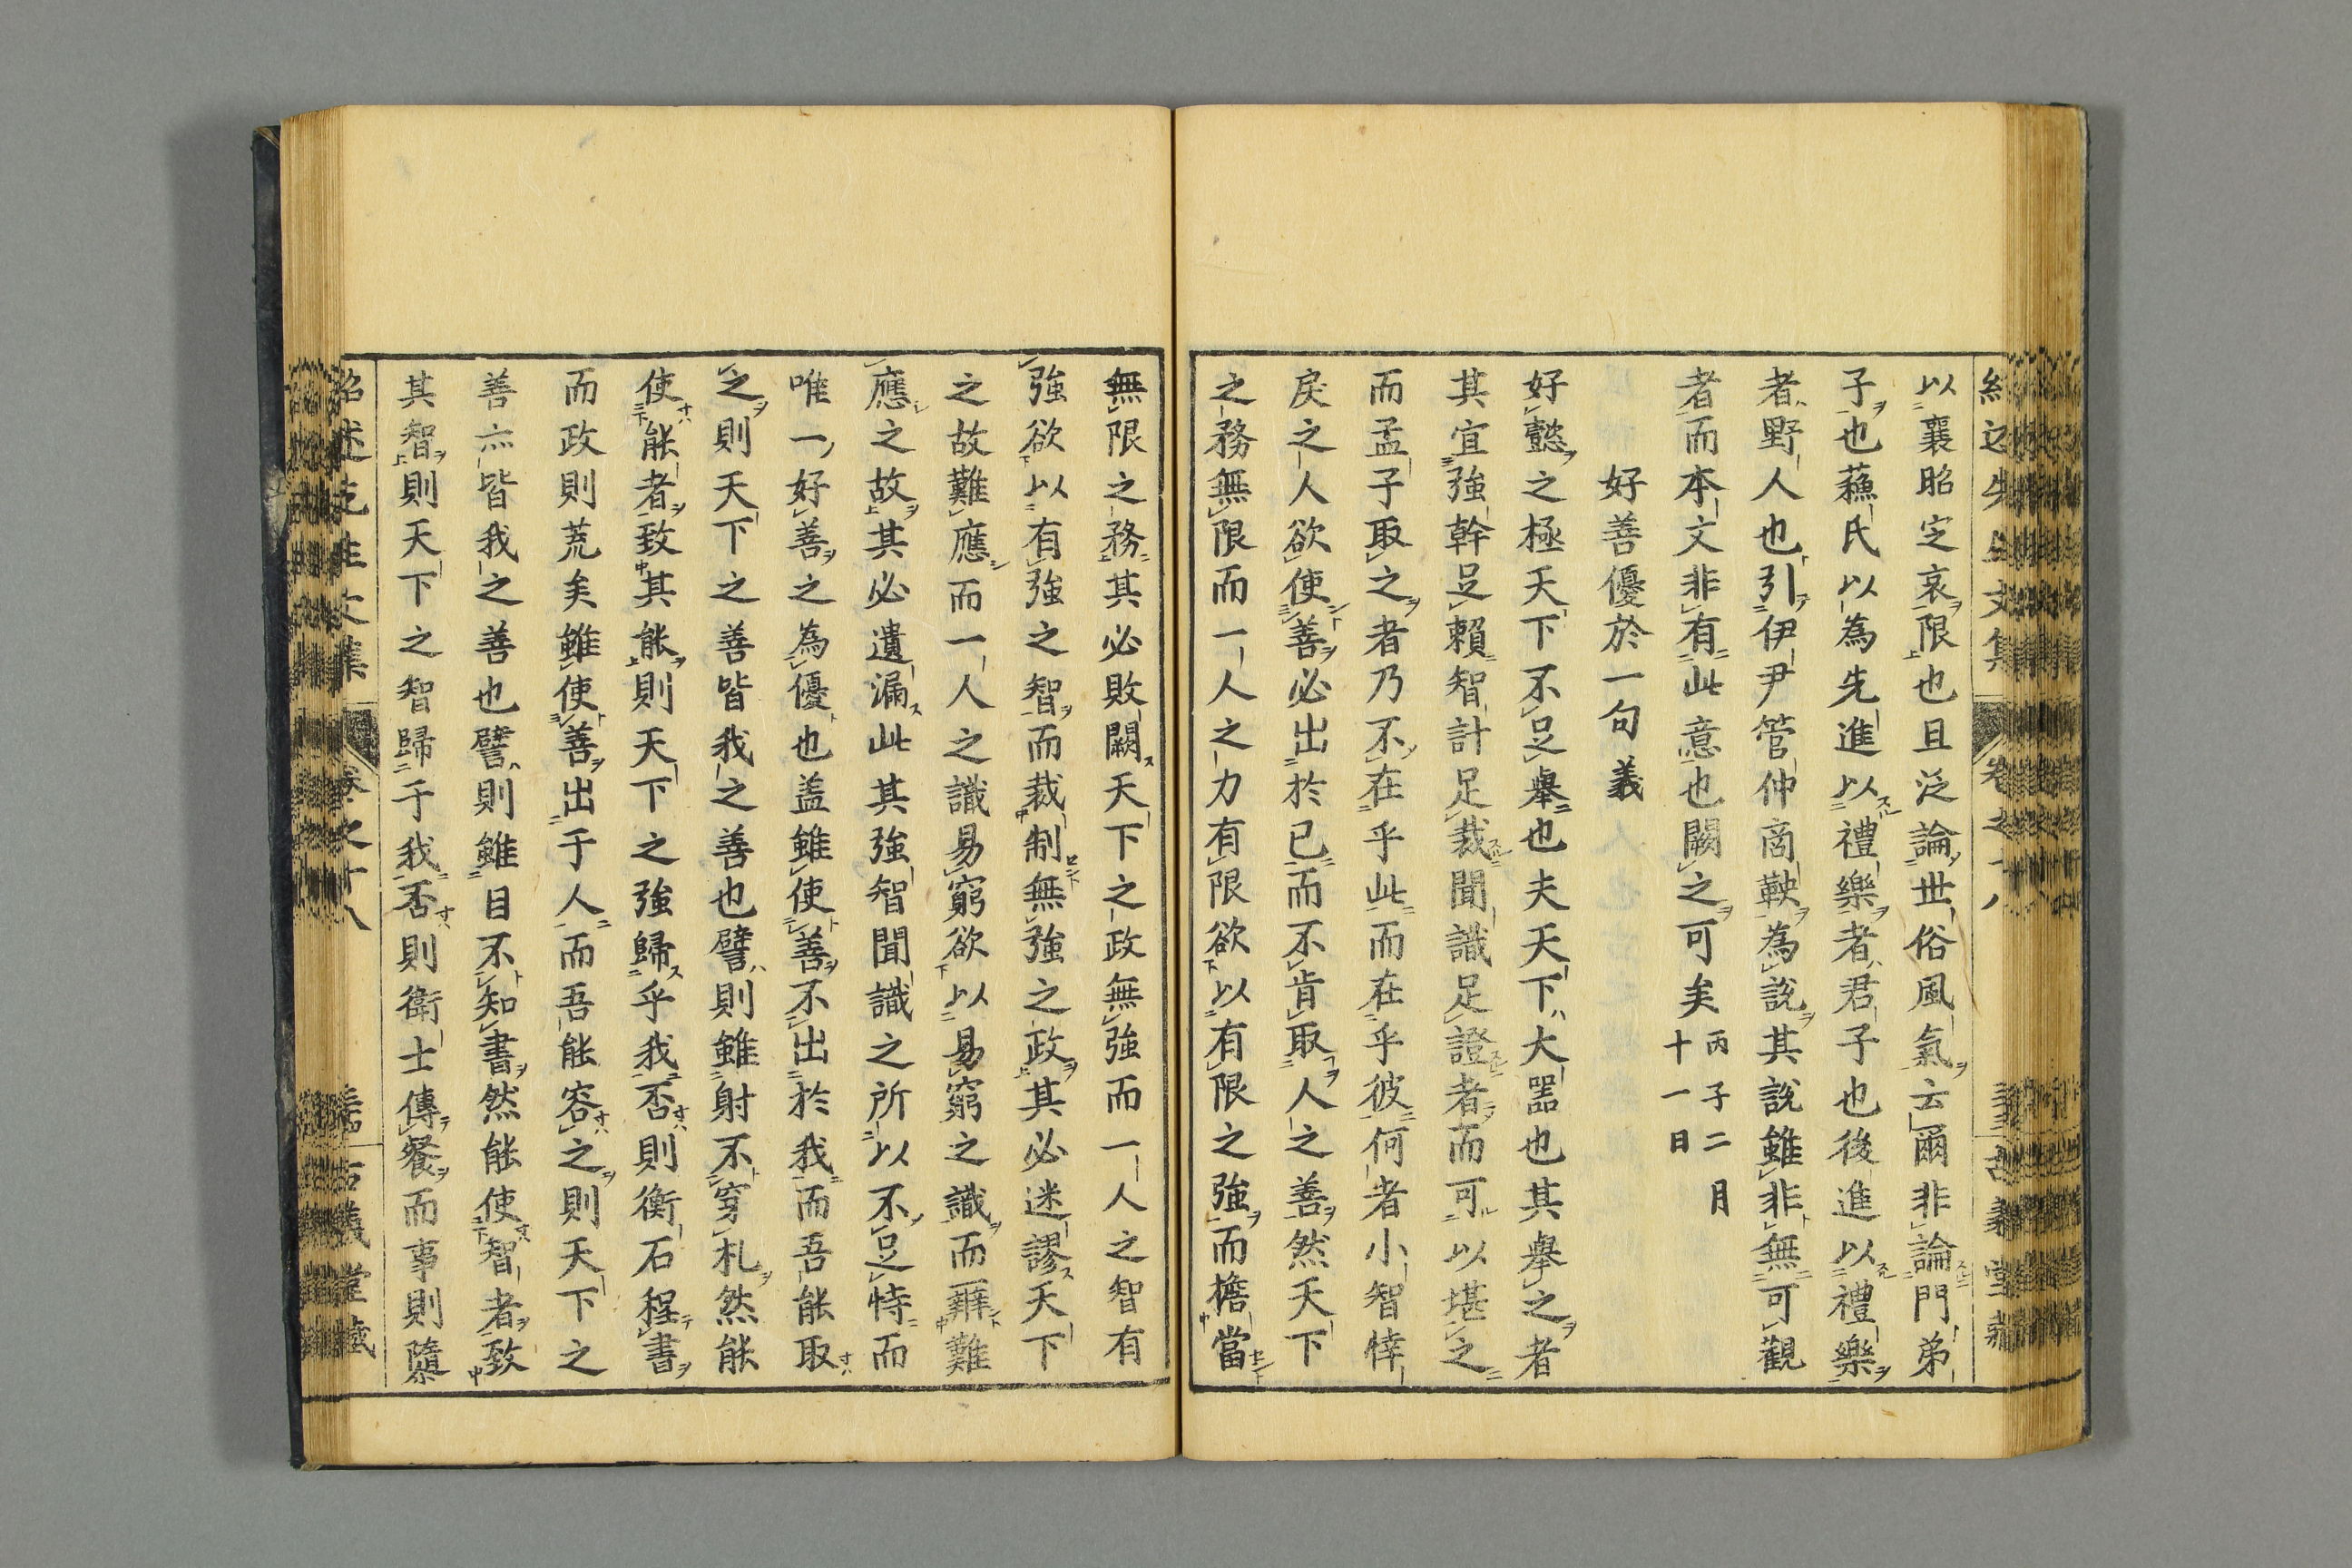 以襄昭定哀限也且泛論世俗風氣云爾非論門弟
子也蘓氏以為先進以禮樂者君子也後進以禮樂
者野人也引伊尹管仲商鞅為説其説雖非無可觀
者而本文非有此意也闕之可矣丙子二月
十一日
好善優於一句義
好懿之極天下不足舉也夫天下大噐也其舉之者
其宜強幹足賴智計足裁聞識足證者而可以堪之
而孟子取之者乃不在乎此而在乎彼何者小智悻
戾之人欲使善必出於已而不肯取人之善然天下
之務無限而一人之力有限欲以有限之強而檐當
無限之務其必敗闕天下之政無強而一人之智有
強欲以有強之智而裁制無強之政其必迷謬天下
之故難應而一人之識易窮欲以易窮之識而辨難
應之故其必遺漏此其強智聞識之所以不足恃而
唯一好善之為優也盖雖使善不出於我而吾能取
之則天下之善皆我之善也譬則雖射不穿札然能
使能者致其能則天下之強歸乎我否則衡石程書
而政則荒矣雖使善出于人而吾能容之則天下之
善亦皆我之善也譬則雖目不知書然能使智者致
其智則天下之智歸于我否則衛士傳餐而事則隳
紹述先生文集 卷之十八 古義堂藏